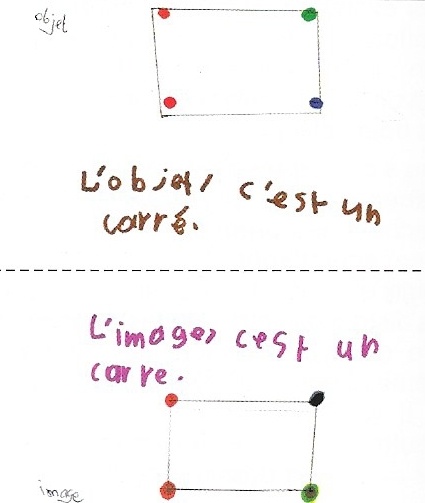 objet
L'objet c'est un
carré.
L'images cest un
carre.
image